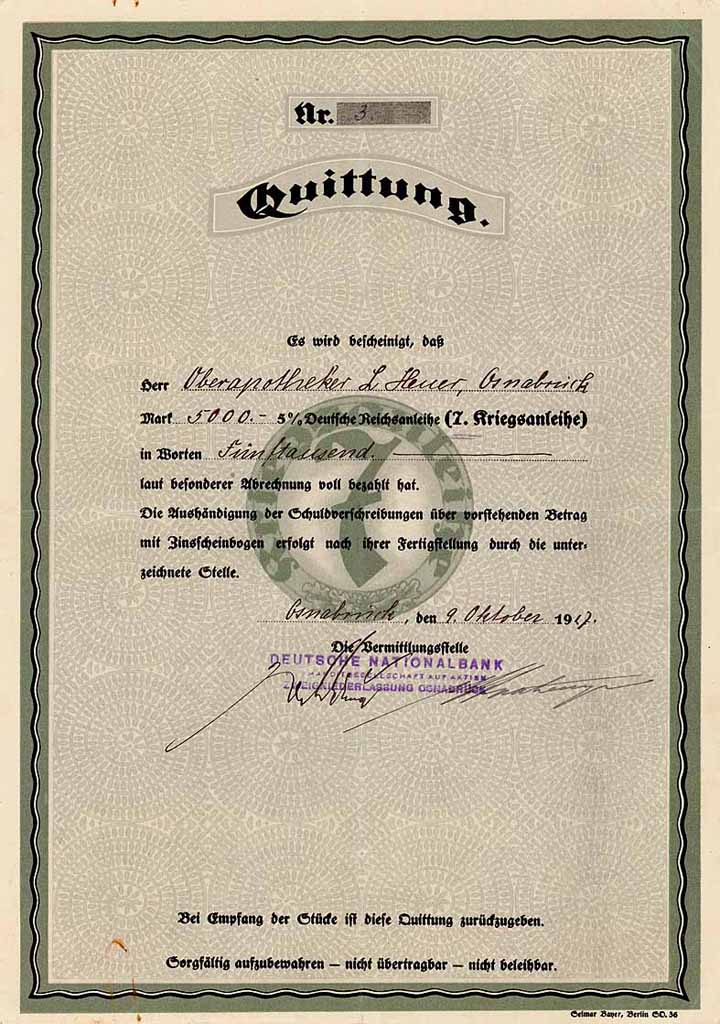 Nr. 3
Quittung.
Es wird bescheinigt, daß
Herr Oberapotheker L. Heuer, Osnabrück
Mark 5000.- 5% Deutsche Reichsanleihe (7. Kriegsanleihe)
in Worten Fünftausend.
laut besonderer Abrechnung voll bezahlt hat.
Die Aushändigung der Schuldverschreibungen über vorstehenden Betrag
mit Zinsscheinbogen erfolgt nach ihrer Fertigstellung durch die unter-
zeichnete Stelle.
Osnabrück, den 9. Oktober 1917.
Die Vermittlungsstelle
DEUTSCHE NATIONALBANK
KOMMANDITGESELLSCHAFT AUF AKTIEN
ZWEIGNIEDERLASSUNG OSNABRÜCK
Bei Empfang der Stücke ist diese Quittung zurückzugeben.
Sorgfältig aufzubewahren – nicht übertragbar – nicht beleihbar.
Selmar Bayer, Berlin SO. 36